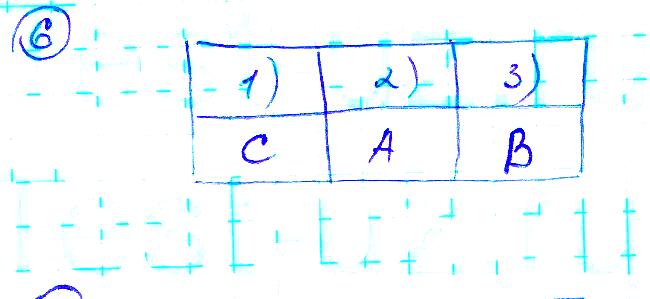 6
1) 2) 3)
C A B